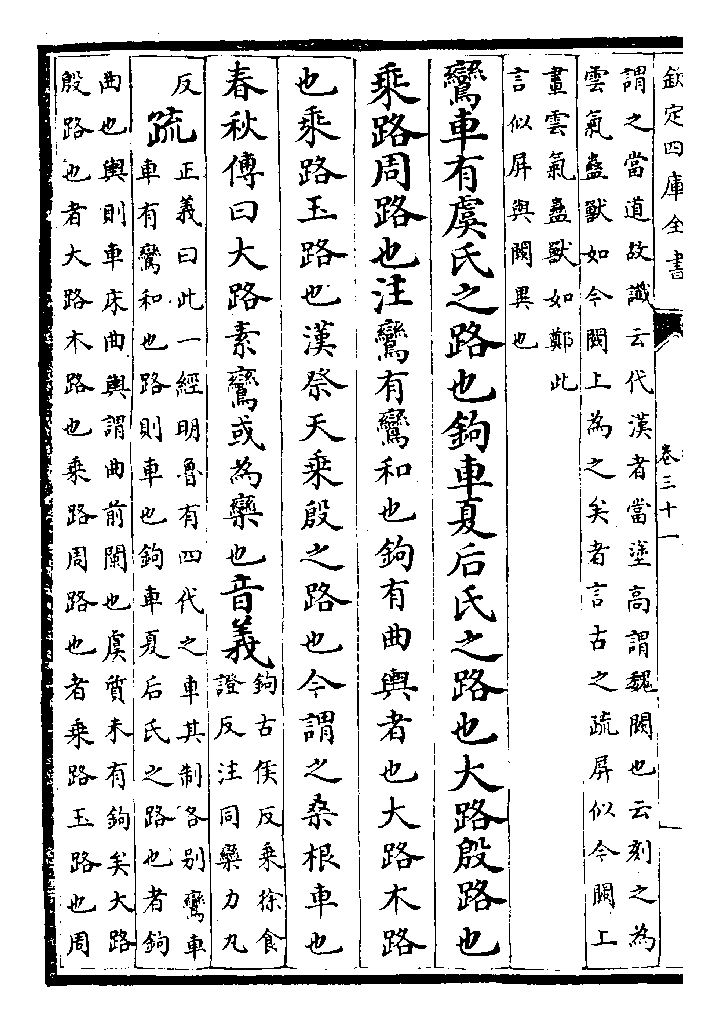 欽定四庫全書
卷三十一
謂之當道故讖云代漢者當塗高謂魏闕也云刻之為
雲氣蟲獸如今闕上為之矣者言古之疏屏似今闕上
畫雲氣蟲獸如鄭此
言似屏與闕異也
鸞車有虞氏之路也鉤車夏后氏之路也大路殷路也
乘路周路也注鸞有鸞和也鉤有曲輿者也大路木路
也乘路玉路也漢祭天乘殷之路也今謂之桑根車也
春秋傳曰大路素鸞或為欒也音義
鉤古侯反乘徐食
證反注同欒力丸
反
疏
正義曰此一經明魯有四代之車其制各別鸞車
車有鸞和也路則車也鉤車夏后氏之路也者鉤
曲也輿則車床曲輿謂曲前闌也虞質未有鉤矣大路
殷路也者大路木路也乘路周路也者乘路玉路也周